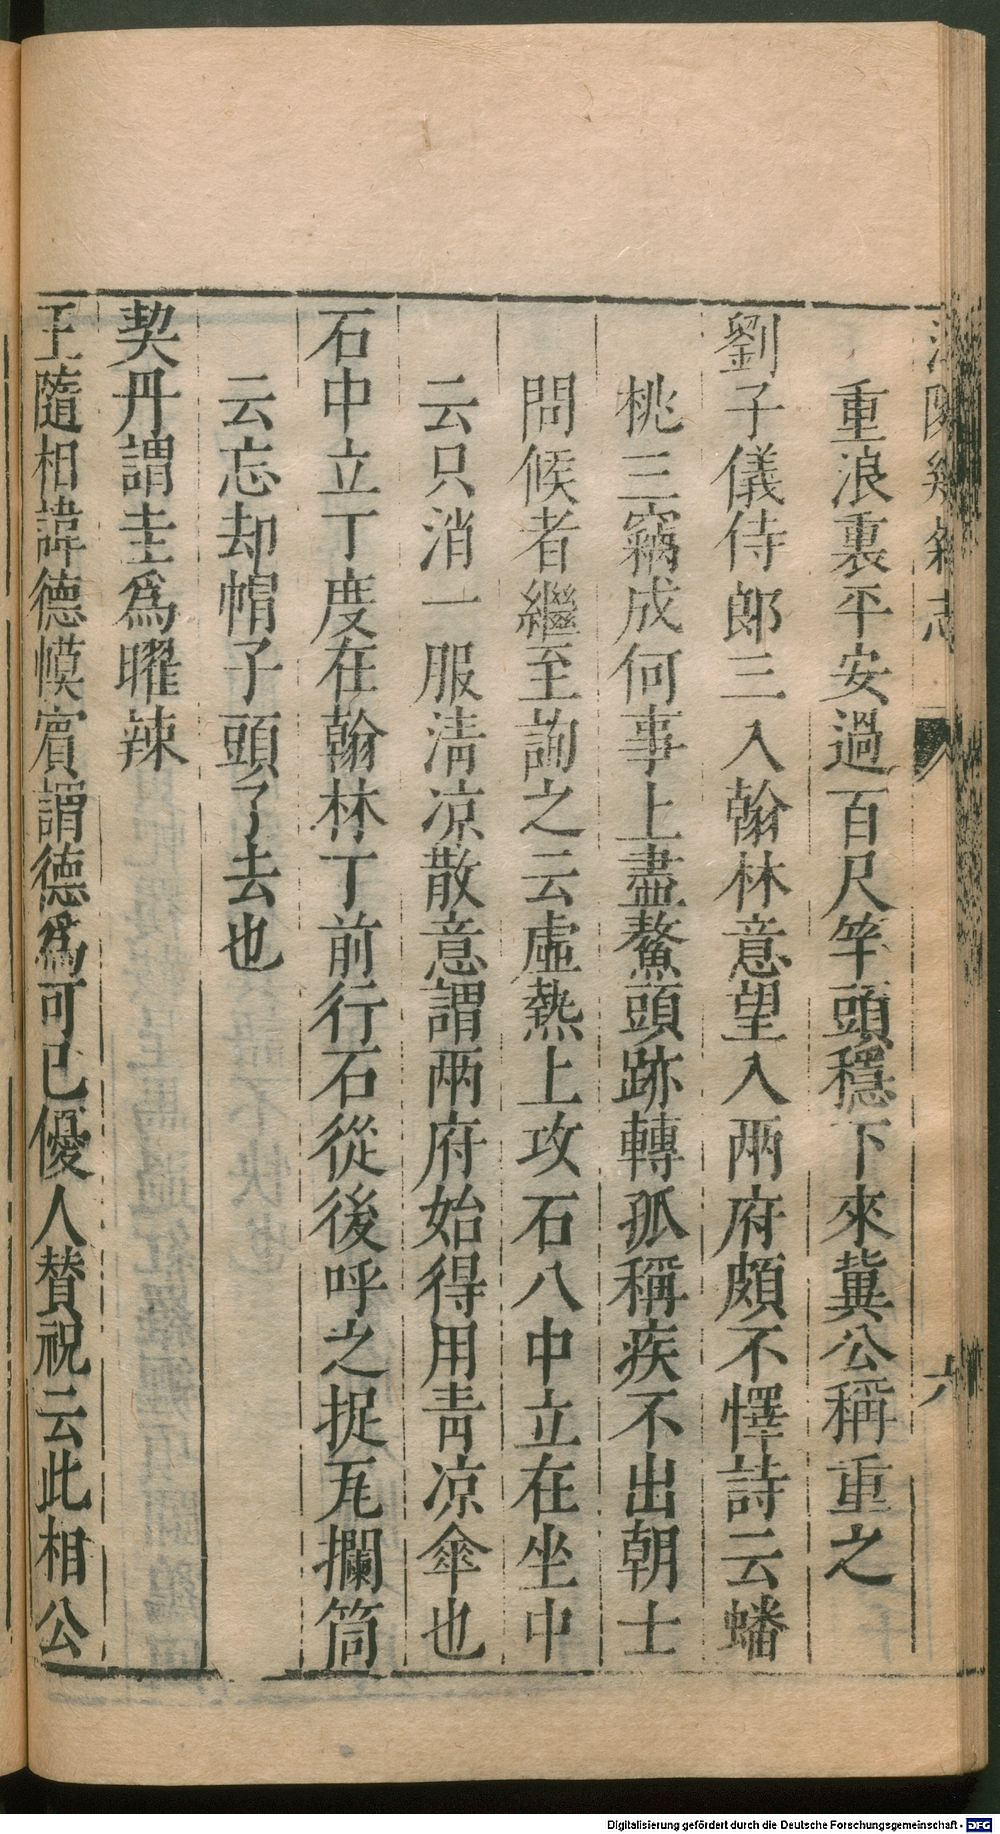 江隣幾雜志 六
重浪裏平安過百尺竿頭穩下來冀公稱重之
劉子儀侍郎三入翰林意望入兩府頗不懌詩云蟠
桃三竊成何事上盡鰲頭跡轉孤稱疾不出朝士
問候者繼至詢之云虛熱上攻石八中立在坐中
云只消一服清凉散意謂兩府始得用青凉傘也
石中立丁度在翰林丁前行石從後呼之捉瓦攔筒
云忘却帽子頭了去也
契丹謂圭爲曜辣
王隨相諱德幙賓謂德爲可已優人賛祝云此相公
Digitalisierung gefördert durch die Deutsche Forschungsgemeinschaft - DFG